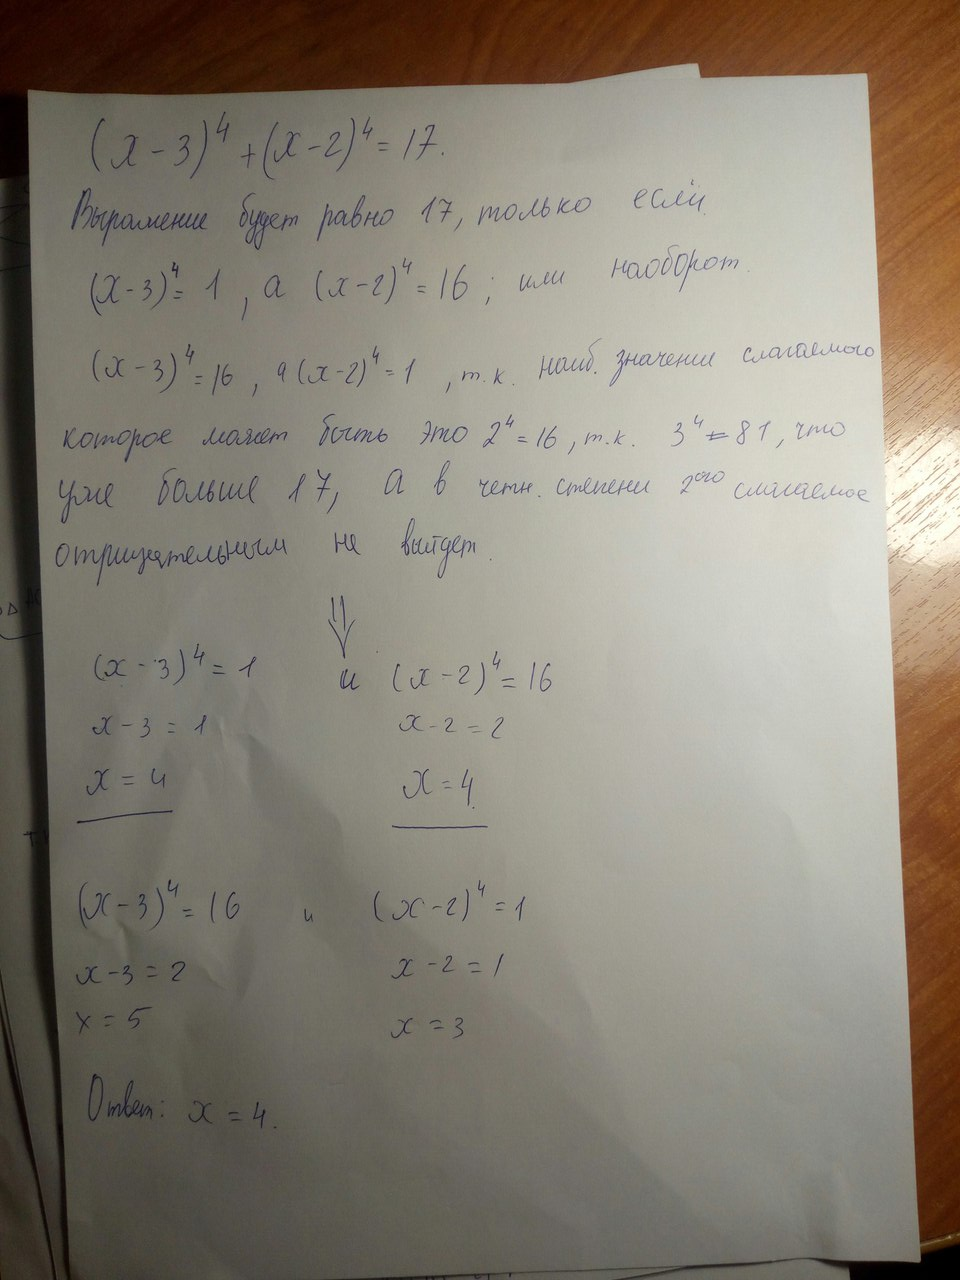 (x-3)⁴+(x-2)⁴=17.
Выражение будет равно 17, только если
(x-3)⁴=1, а (x-2)⁴=16; или наоборот.
(x-3)⁴=16, а (x-2)⁴=1, т.к. наиб. значение слагаемого
которое может быть это 2⁴=16, т.к. 3⁴=81, что
уже больше 17, А в четн. степени 2ого слагаемое
отрицательным не выйдет.
⇓
(x-3)⁴=1 и (x-2)⁴=16
x-3=1 x-2=2
x=4 x=4.
(x-3)⁴=16 и (x-2)⁴=1
x-3=2 x-2=1
x=5 x=3
Ответ: x=4.